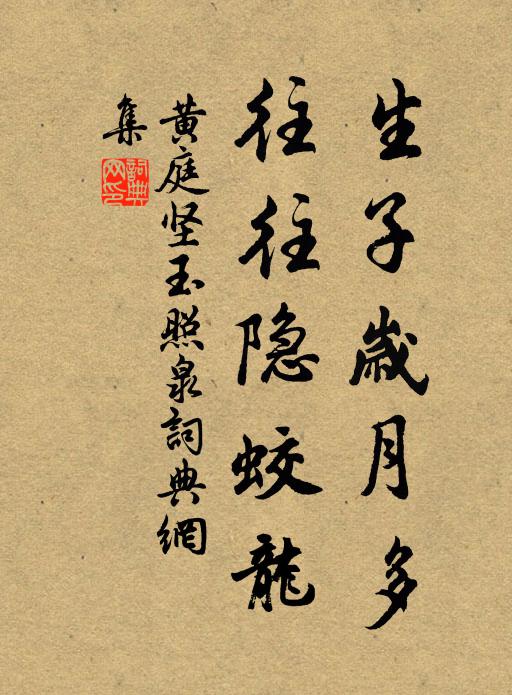 生子歲月多
往往隐蛟龍
黄庭坚玉照泉詞典網
集
詞典网印